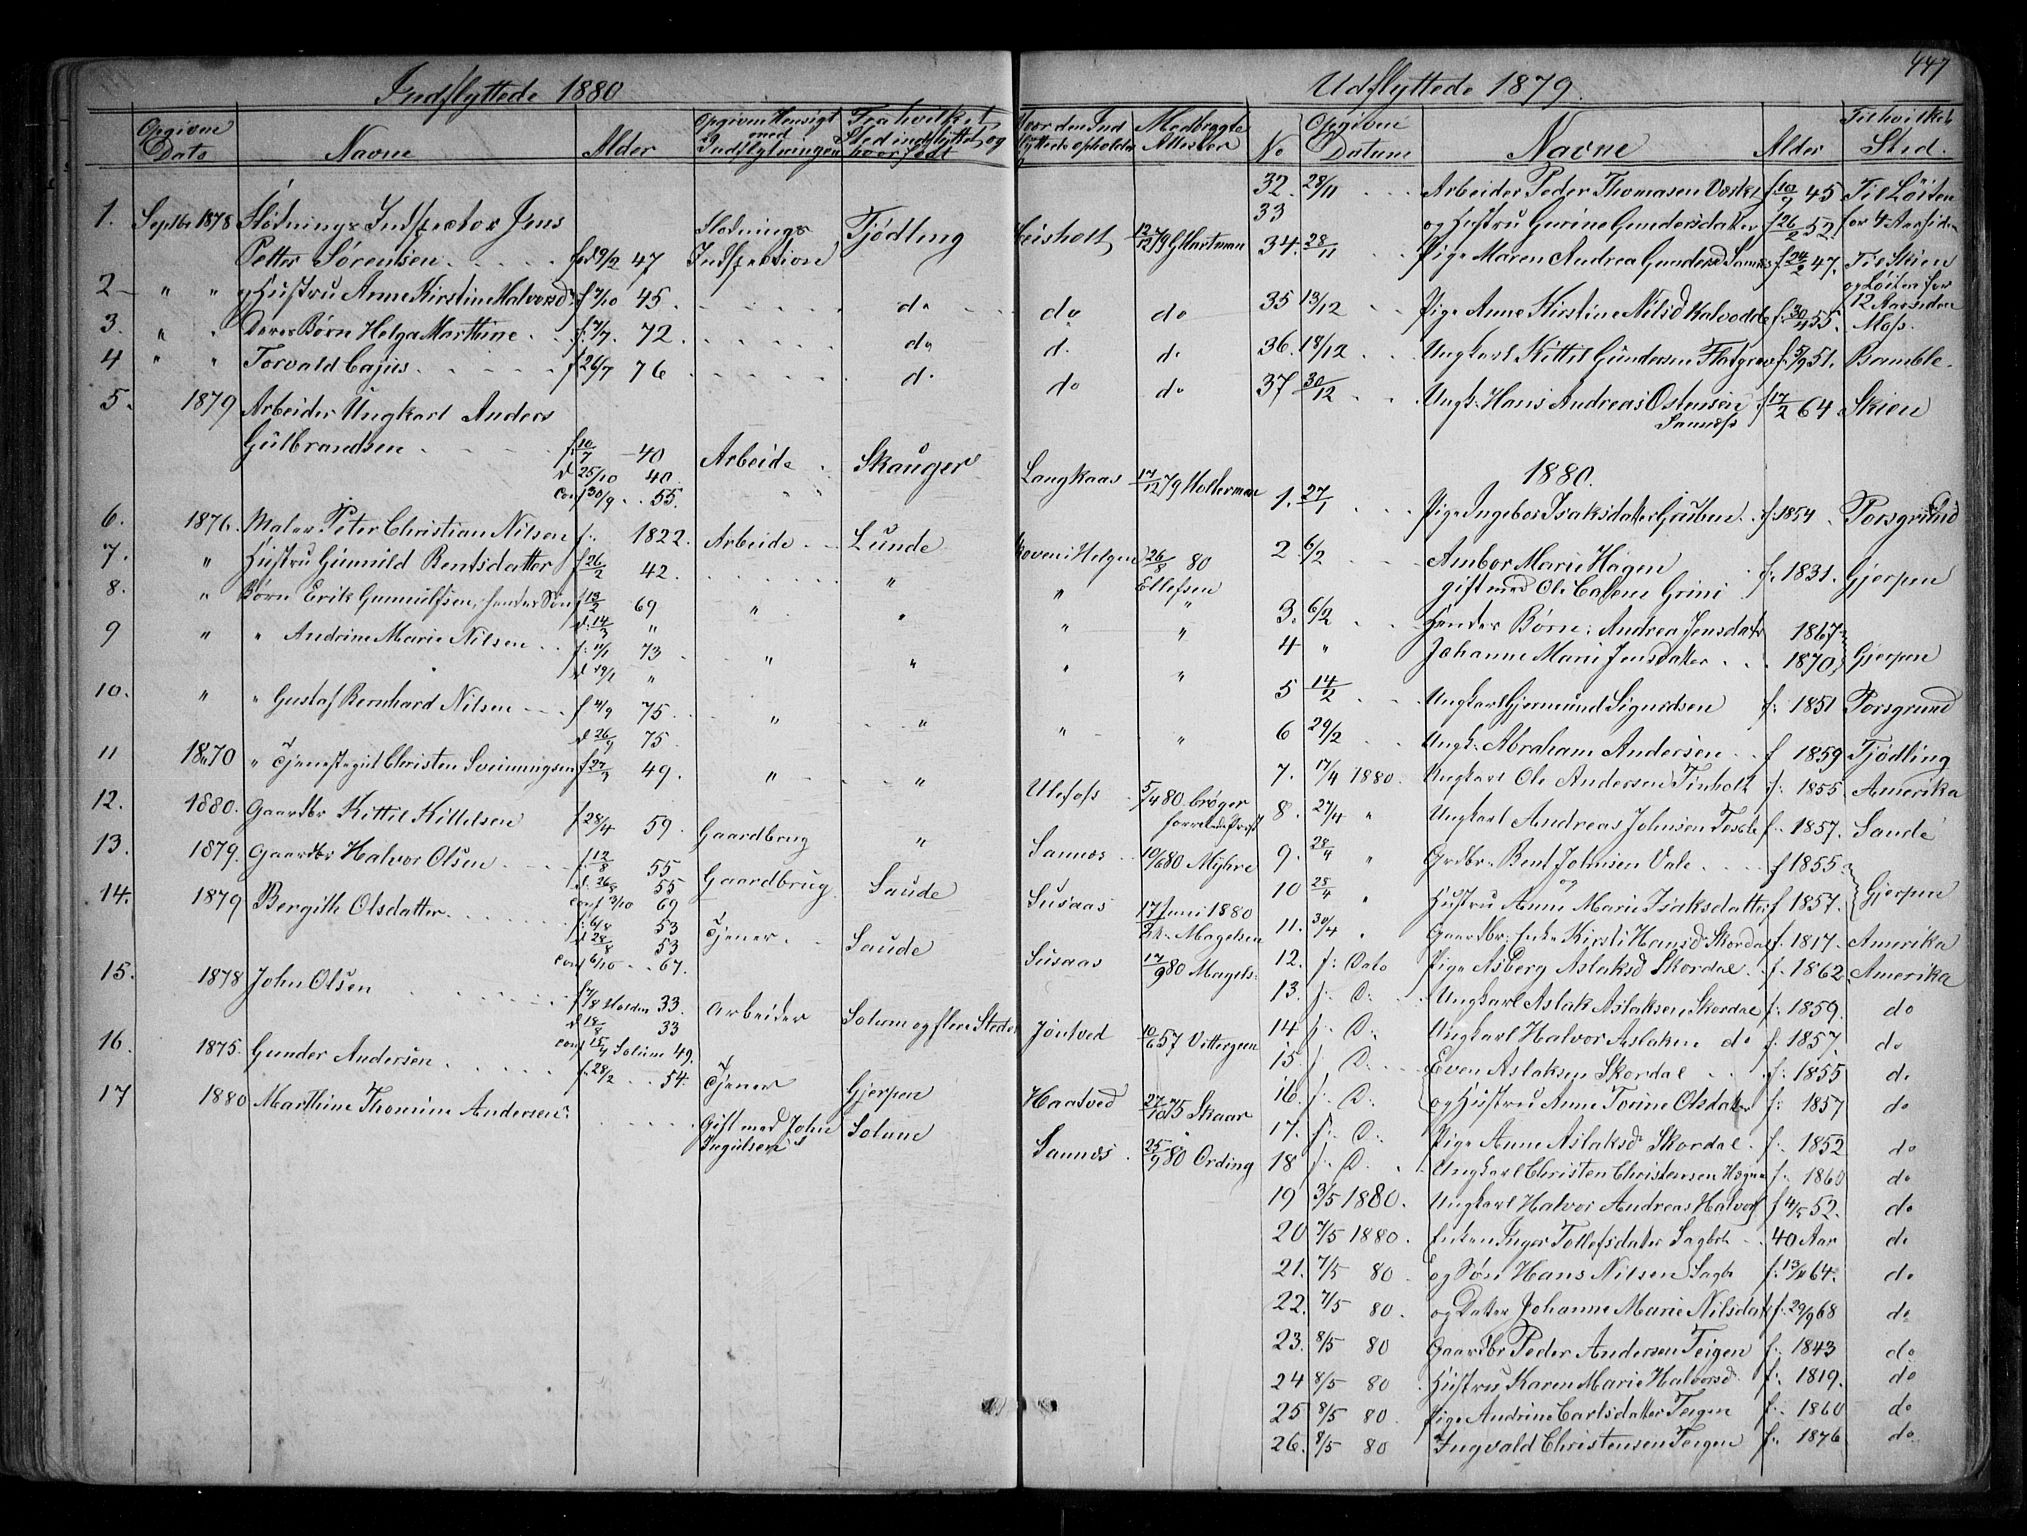 447
Indflyttede 1880
Opgiven Dato
Navne
Alder
Opgiven Hensigt med Indflytningen
Fra hvilket Sted indflyttet og hvor født
Hvor den Indflyttede opholder
Medbragte Attester
1. Septbr 1878 Fløtnings Inspector Jens Fløtnings Tjødling Heisholt 12/12 79 G. Hartman
Petter Sørensen f. d 9/2 47 Inspection
2 " " og Hustru Anne Kirstine Halvorsd f 7/10 45 do do do
3. " " Deres Børn Helga Marthine f. 7/7. 72. do do do
4 " " Torvald Cajus f 26/7 76 do do do
5. 1879 Arbeider Ungkarl Anders
Gulbrandsen f. 10/7 40 Arbeide Skauger Langkaas 17/12 79 Holterman
d 25/10 40
Conf 30/9 55.
6. 1876. Maler Peter Christian Nilsen f. 1822. Arbeide Lunde Hoven i Helgen 26/8 80 Ellefsen
7. " Hustru Gunnild Bentsdatter f 26/2 42. " "
8. " Børn Erik Gunnulfsen, hendes Søn f 13/2 69 " " " "
d. 14/3 "
9 " " Andrine Marie Nilsen f. 11/1 73 " " " "
d 19/1 "
10. " " Gustaf Bernhard Nilsen f 4/9 75. " " " "
d 26/9 75.
11 1870 " Tjenestegut Christen Sveinungsen f 27/3 49. " " Ulefos 5/4 80 Crøger
12. 1880. Gaardbr Kittil Kittelsen f 28/4 59. Gaardbrug " Sannes 10/6 80 Myhre
13. 1879. Gaardbr Halvor Olsen f. 12/8 55 Gaardbrug Saude Susaas 17 Juni 1880
d. 26/8 55
Conf 3/10 69
14. 1879 Bergith Olsdatter f. 6/8 53 Tjener Saude Susaas 17/9 80 Magels.
d 28/8 53
Conf 6/10 67.
15. 1878 John Olsen f 7/8 Holden 33. Arbeider Solum og flere Steder Jøntved 10/6 57
d 18/8 33
Conf 15/4 Solum 49.
16. 1875. Gunder Andersen f. 28/2 54. Tjener Gjerpen Haatved 27/10 75 Skaar
17 1880 Marthine Thomine Andersen Gift med John Ingulsen Solum Sannes 25/9 80 Ording
Udflyttede 1879.
No
Opgiven Datum
Navne
Alder
Til hvilket Sted.
32. 28/11 Arbeider Peder Thomasen f 10/9 45 Til Løiten
33 og Hustru Gurine Gundersdatter f 26/2 52. for 4 Aar siden
34. 28/11 Pige Maren Andrea Gundersd Sannes f 24/2 47. Til Skien
og Løiten for
12 Aar siden
35 13/12 Pige Anne Kirstine Nilsd Kalvodde f. 30/4 55. Moss.
36. 18/12 Ungkarl Kittil Gundersen f. 5/9 51. Bamble.
37 30/12 Ungk. Hans Andreas Ostensen Sannes f 17/2 64 Skien
1880.
1. 27/1 Pige Ingebor Isaksdatter Gruben f. 1854 Porsgrund
2 6/2 Ambor Marie Hagen f. 1831. Gjerpen
gift med Ole Grini
3. 6/2 Hendes Børn: Andrea Jensdatr 1867
4 " Johanne Marie Jensdatter 1870, Gjerpen
5 14/2 Ungkarl Gjermund Sigurdsen f. 1851 Porsgrund
6 29/2 Ungk. Abraham Andersen f 1859 Tjødling
7. 17/4 1880. Ungkarl Ole Andersen Tinholt f. 1855 Amerika
8. 27/4 " Ungkarl Andreas Johnsen f. 1857. Saude
9. 28/4 " Grdbr. Bent Johnsen Vale f 1855
10 28/4 " og Hustru Anne Marie Isaksdatter f 1857. Gjerpen
11. 30/4 " Gaardbr. Enke Kirsti Hansd Skordal f. 1817. Amerika
12. f. Dato Pige Asberg Aslaksd Skordal f. 1862 Amerika
13. f. D. Ungkarl Aslak Aslaksen Skordal f. 1859. do
14. f. D. Ungkarl Halvor Aslaksen do f. 1857 do
15. f. D. Even Aslaksen Skordal f. 1855 do
16. f. D. og Hustru Anne Torine Olsdatter f. 1857 do
17. f. D. Pige Anne Aslaksd Skordal f. 1852 do
18 f. D. Ungkarl Christen Christensen f. 1860 do
19 3/5 1880. Ungkarl Halvor Andreas Halvors f 4/5 52. do
20 7/5 1880. Enken Inger Tollefsdatter Sagbr 40 Aar do
21. 7/5 80 og Søn Hans Nilsen Sagbr f. 13/11 64. do
22. 7/5 80. og Datter Johanne Marie Nilsdat f. 29/9 68 do
23. 8/5 80 Gaardbr Peder Andersen Teigen f. 1843 do
24 8/5 80 Hustru Karen Marie Halvorsd f. 1819. do
25 8/5 80. Pige Andrine Carlsdatter Teigen f. 1860 do
26. 8/5 80 Ingvald Christensen Teigen f. 1876 do